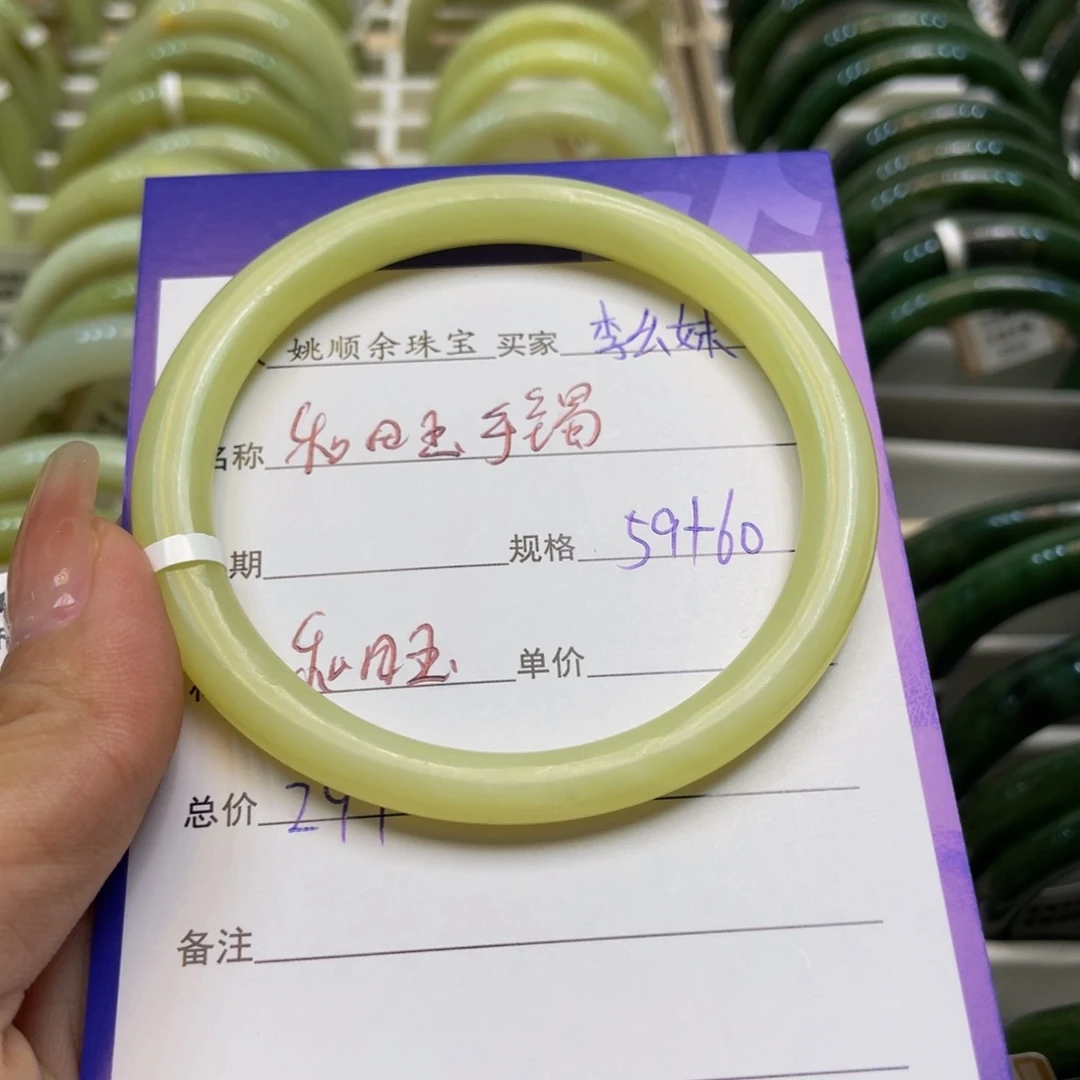 姚顺余珠宝 买家 李么妹
名称 和田玉手镯
期 规格 59+60
和田玉 单价
总价 29
备注